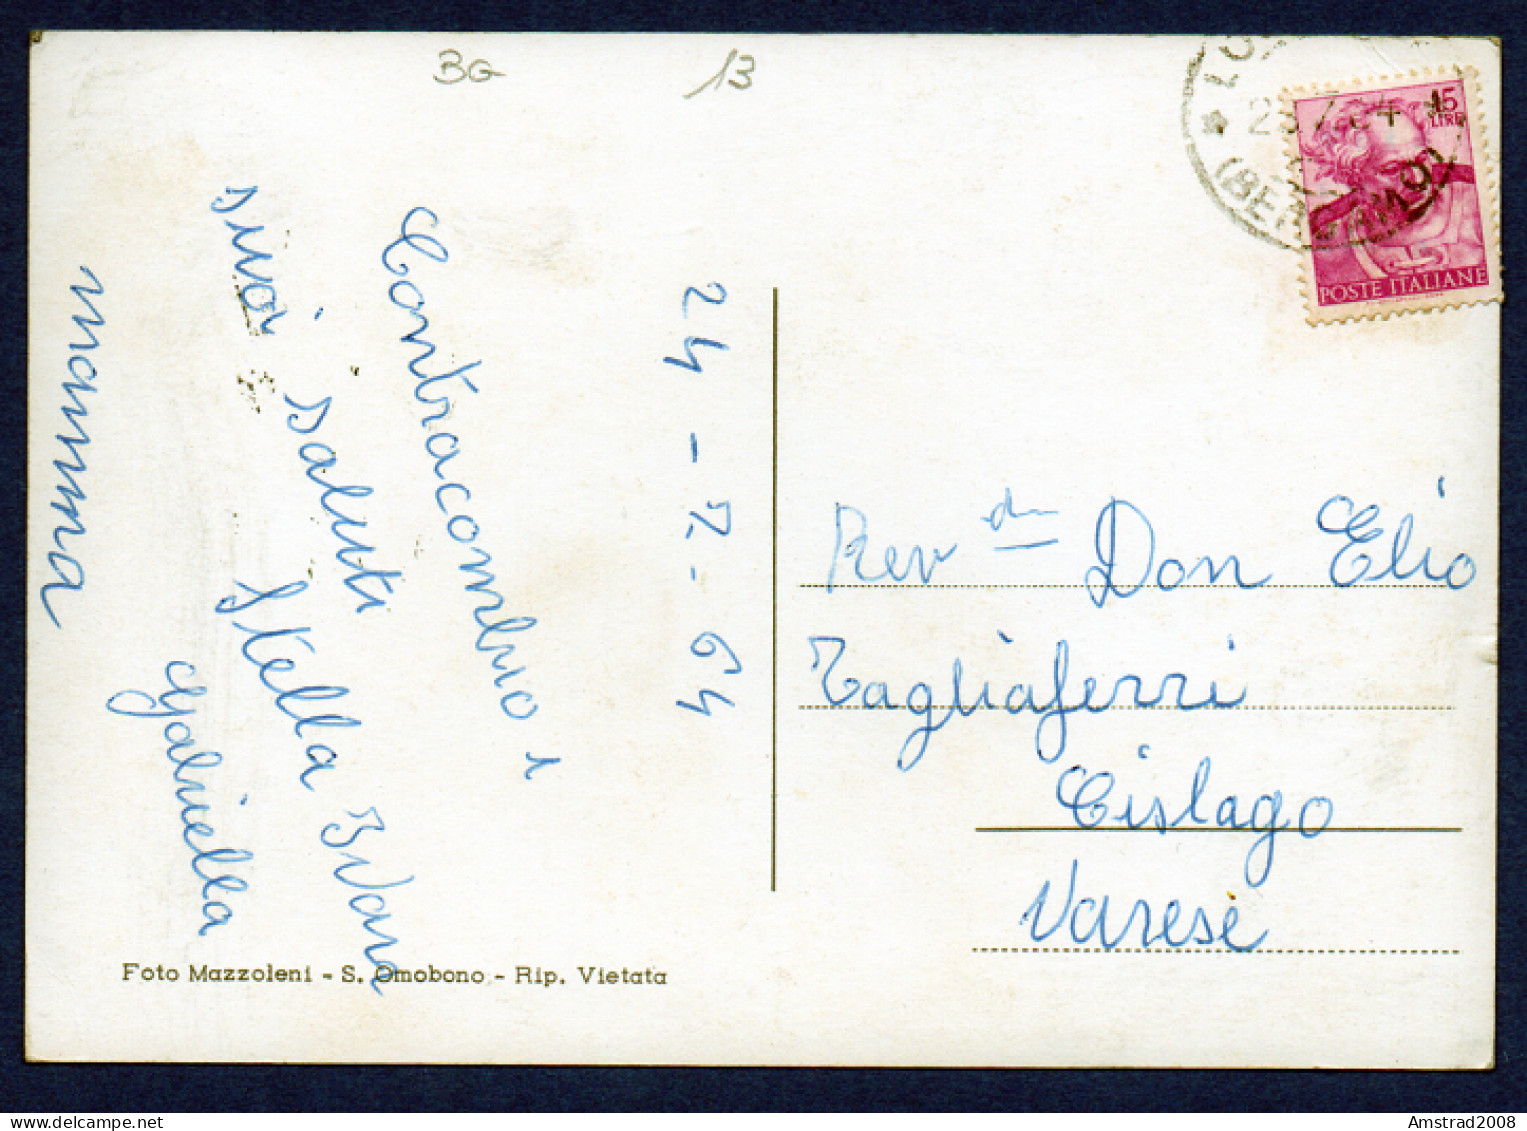 BG
13
15
LIRE
POSTE ITALIANE
(BERGAMO)
24-7-64
Contracombio i
suoi saluti
Stella Ivana
Gabriella
mamma
Rev do Don Elio
Tagliaferri
Cislago
Varese
Foto Mazzoleni - S. Omobono - Rip. Vietata
Amstrad2008